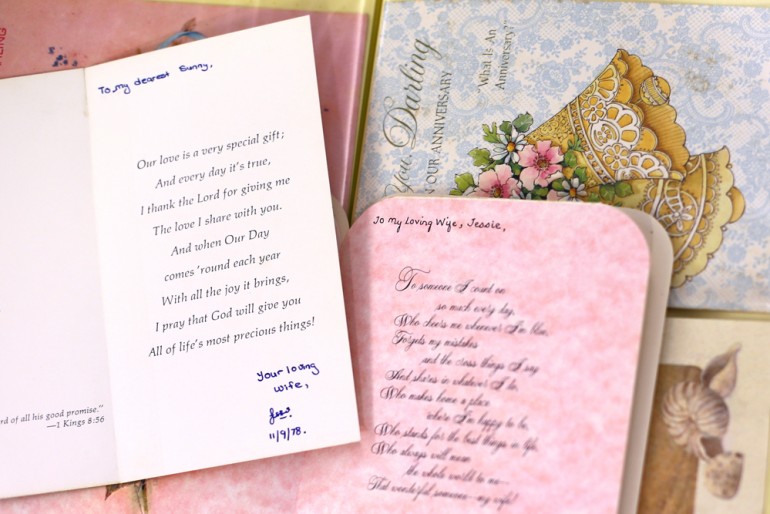 To my dearest Sunny,
Our love is a very special gift;
And every day it's true,
I thank the Lord for giving me
The love I share with you.
And when Our Day
comes 'round each year
With all the joy it brings,
I pray that God will give you
All of life's most precious things!
Your loving
wife,
Jess.
11/9/78.
rd of all his good promise."
—1 Kings 8:56
You, Darling
ON OUR ANNIVERSARY
What Is An
Anniversary?
To My Loving Wife, Jessie,
To someone I count on
so much every day,
Who cheers me whenever I'm blue,
Forgets my mistakes
and the cross things I say
And shares in whatever I do,
Who makes home a place
where I'm happy to be,
Who stands for the best things in life,
Who always will mean
the whole world to me—
That wonderful someone—my wife!